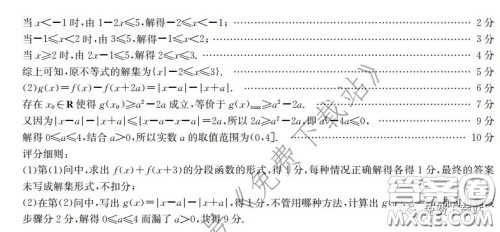 当 x<-1 时,由 1-2x≤5,解得-2≤x<-1; 2 分
当-1≤x<2 时,由 3≤5,解得-1≤x<2; 3 分
当 x≥2 时,由 2x-1≤5,解得 2≤x≤3. 4 分
综上可知,原不等式的解集为{x|-2≤x≤3}. 5 分
(2)g(x)=f(x)-f(x+2a)=|x-a|-|x+a|. 6 分
存在 x₀∈R 使得 g(x₀)≥a²-2a 成立,等价于 g(x)max≥a²-2a. 7 分
又因为|x-a|-|x+a|≤|x-a-x-a|=2a,所以 2a≥a²-2a,即 a²-4a≤0, 9 分
解得 0≤a≤4,结合 a>0,所以实数 a 的取值范围为(0,4]. 10 分
评分细则:
(1)第(1)问中,求出 f(x)+f(x+3)的分段函数的形式,得 1 分,每种情况正确解得各得 1 分,最终的答案
未写成解集形式,不扣分;
(2)在第(2)问中,写出 g(x)=|x-a|-|x+a|,得 1 分,不管用哪种方法,计算出 g(x)
步骤分 2 分,解得 0≤a≤4 而漏了 a>0,共得 9 分.
《免费下载站》
答案圈
MXQE.COM